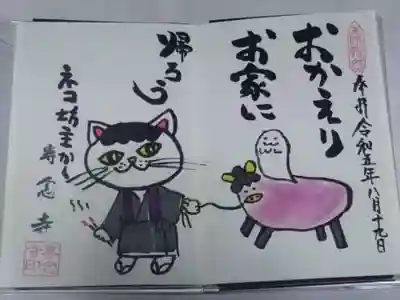 奉拝 令和五年八月十九日
おかえり
お家に
帰ろう
ネコ坊主から
専念寺